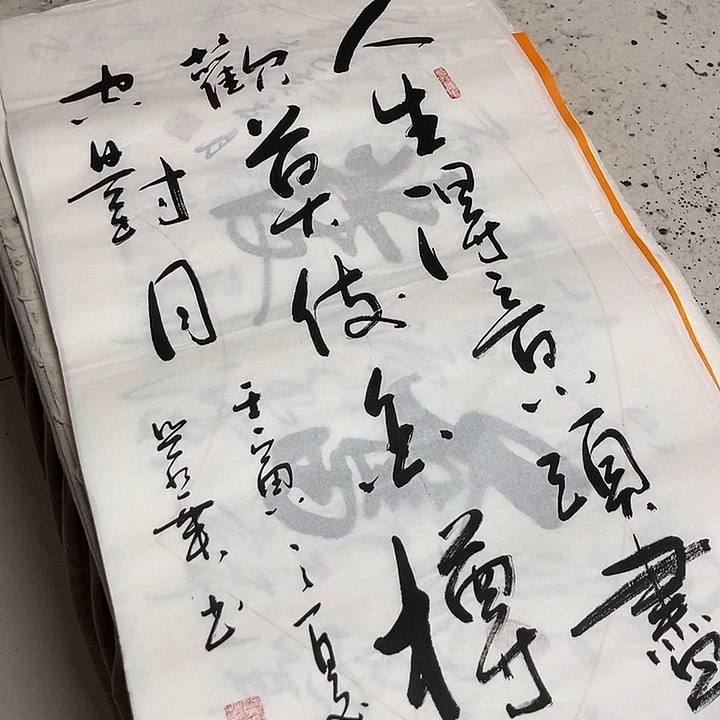 人生得意須盡
歡莫使金樽
空對月
壬寅之夏
书